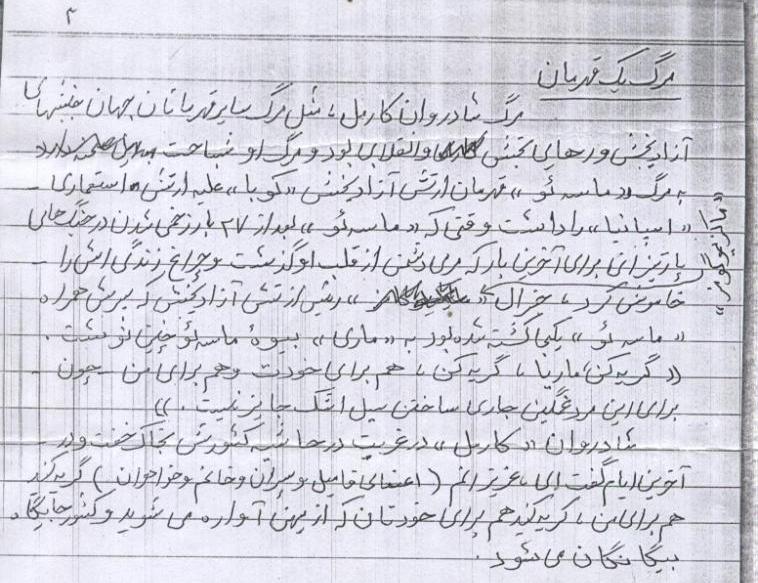 ۳
مرگ یک قهرمان
مرگ شادروان کارمل، مثل مرگ سایر قهرمانان جهان جنبشهای
آزادیبخش ورهایی بخش والقلابی بود و مرگ او شباحت دارد
به مرگ «ماسه ئو» قهرمان ارتش آزادیبخش «کوبا» علیه ارتش استعماری
«اسپانیا» را داشت وقتی که «ماسه ئو» بعد از ۲۷ بار زخمی شدن در جنگ های
پارتیزانی برای آخرین بار که مرمی دشمن از قلب او گذشت و چراغ زندگی اش را
خاموش کرد، جنرال «ماکزیموگومز» رئیس ارتش آزادیبخش که پسرش همراه
«ماسه ئو» یکجا کشته شده بود به «ماری» بیوهٔ ماسه ئو چنین نوشت.
«گریه کن! ماریا، گریه کن، هم برای خودت وهم برای من - چون -
برای این مرد غمگین جاری ساختن سیل اشک جایز نیست.»
شادروان «کارمل» در غربت در حاشیه کشورش بخاک خفت و در -
آخرین ایام گفت ای، عزیزانم (اعضای فامیل و پسران و خانم و خواهران) گریه کنید
هم برای من، گریه کنید هم برای خودتان که از میهن آواره می شوید و کشور جایگاه
بیگانگان می شود.